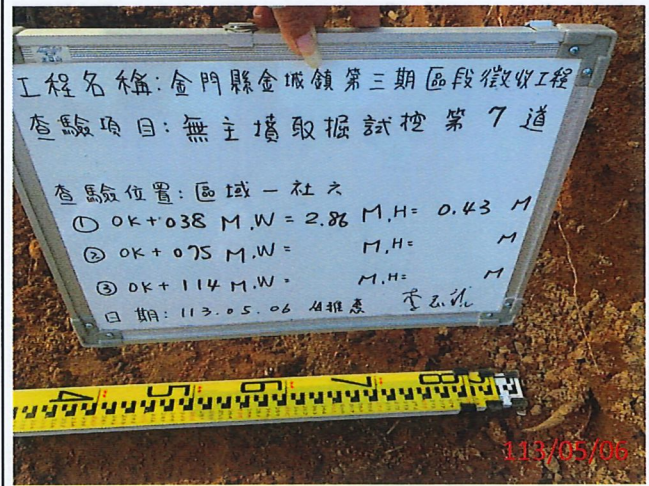 工程名稱:金門縣金城鎮第三期區段徵收工程
查驗項目:無主墳取掘試挖第7道
查驗位置:區域一社六
① 0K+038 M,W= 2.86 M,H= 0.43 M
② 0K+075 M,W= M,H= M
③ 0K+114 M,W= M,H= M
日期:113.05.06
4 5 6 7 8
113/05/06